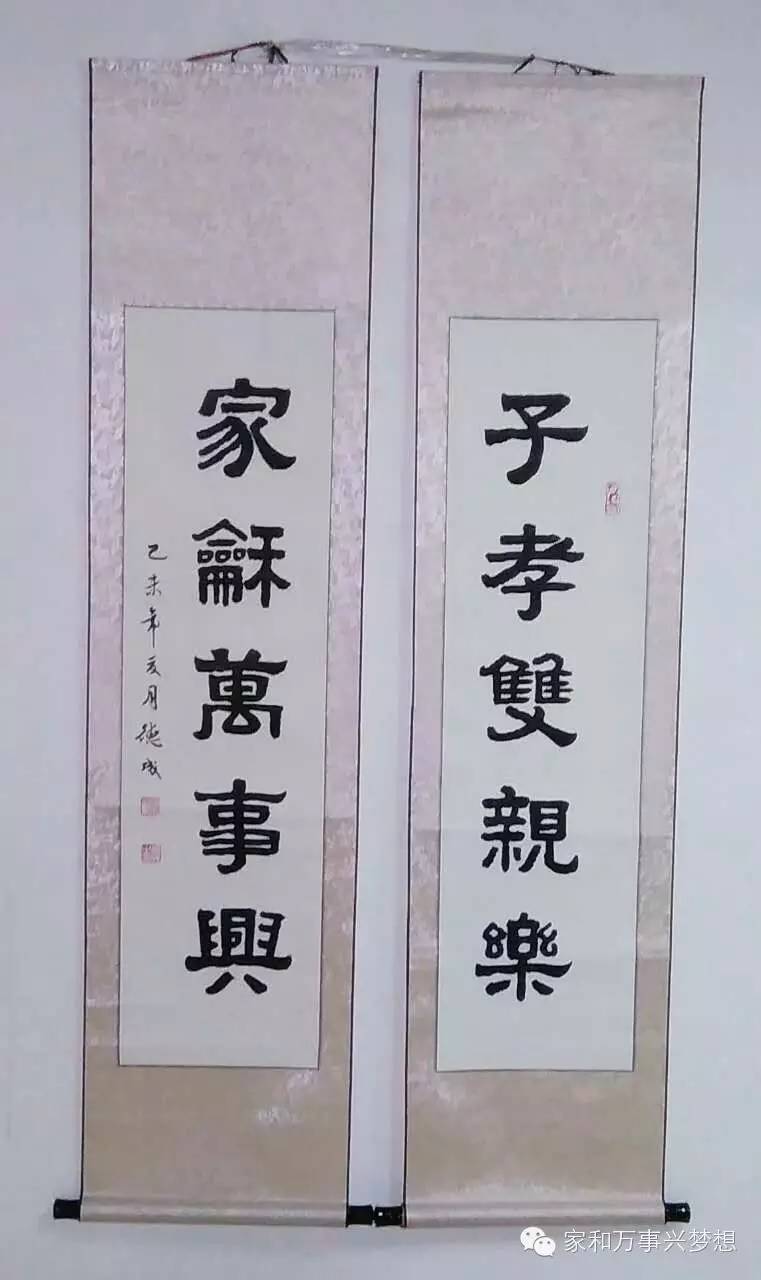 子孝雙親樂
家龢萬事興
乙未年亥月德成
家和万事兴梦想